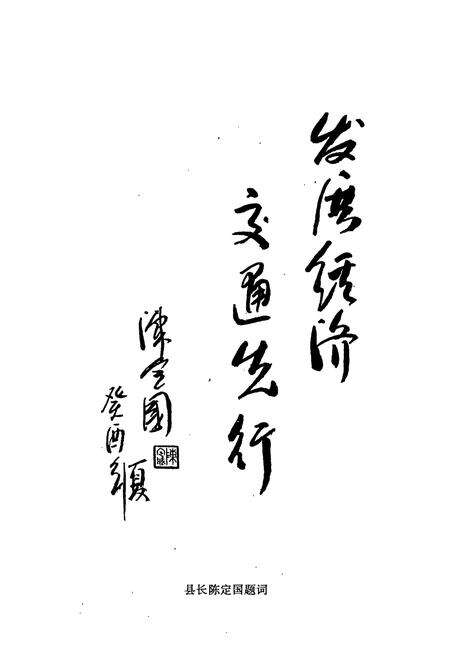 发展经济
交通先行
陈定国
癸酉夏
县长陈定国题词